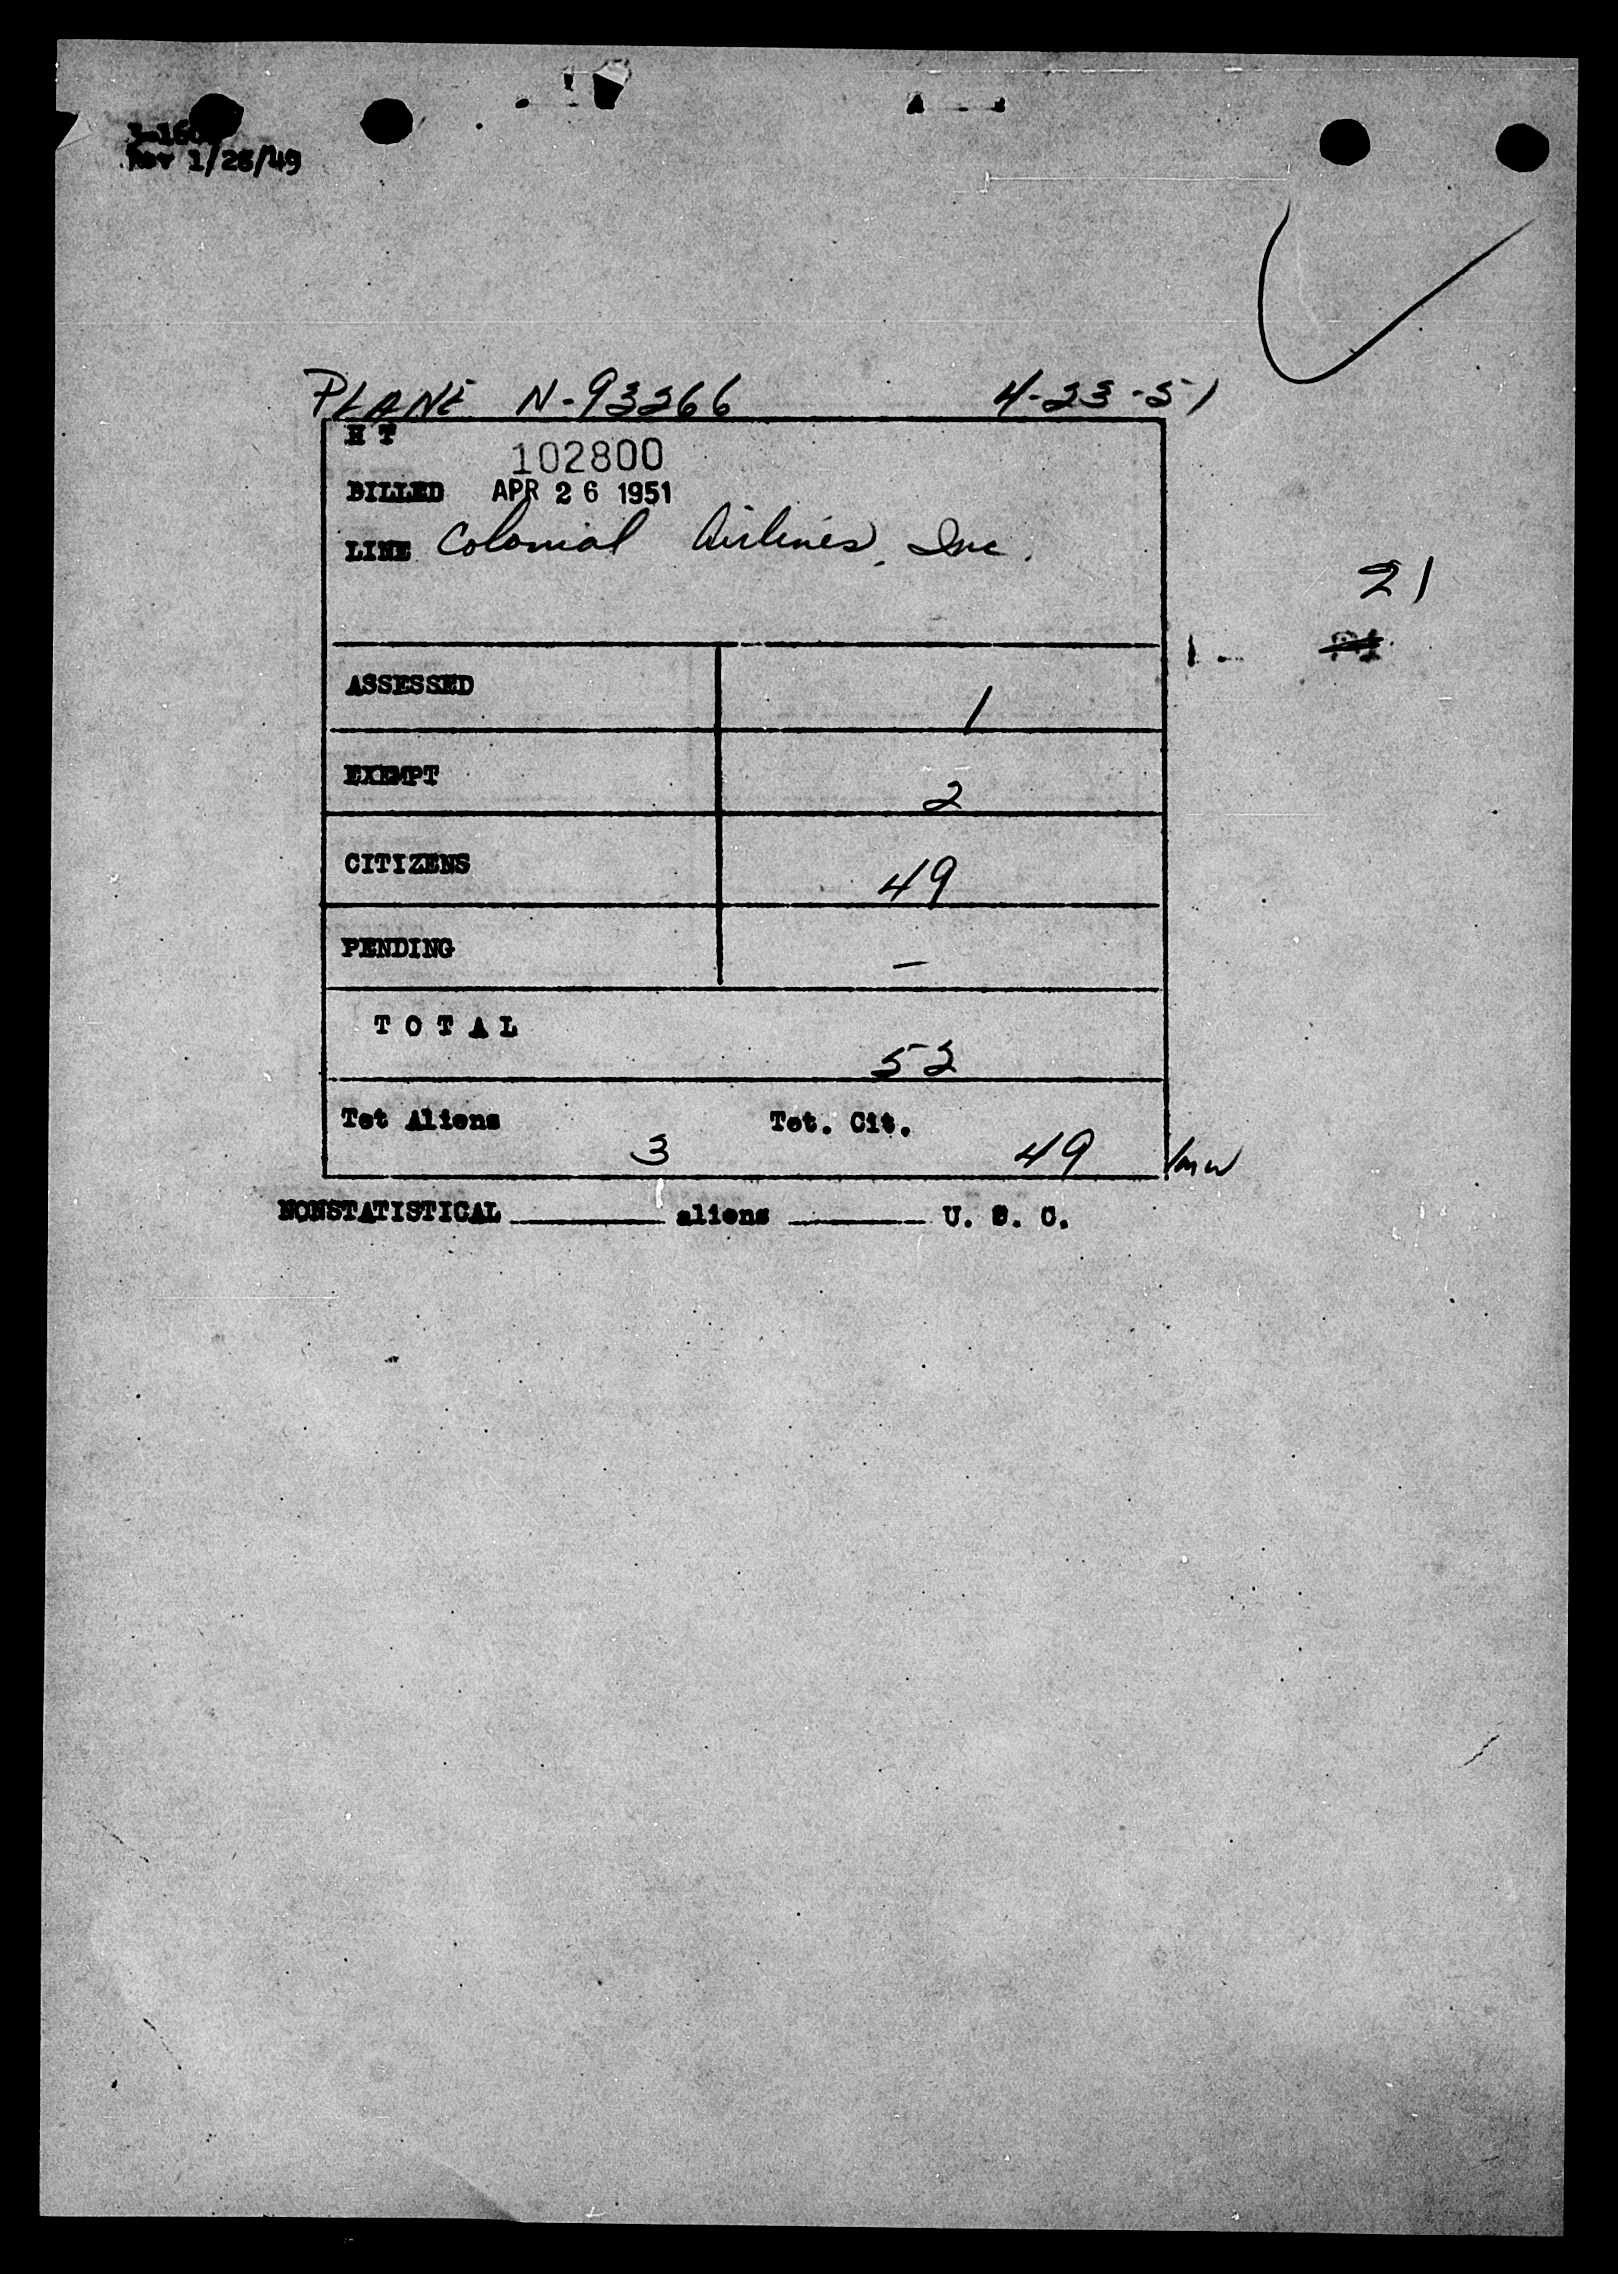 Rev 1/26/49
PLANE N-93266 4-23-51
H T
102800
BILLED APR 26 1951
LINE Colonial Airlines, Inc.
21
ASSESSED 1
EXEMPT 2
CITIZENS 49
PENDING –
TOTAL 52
Tot Aliens 3 Tot. Cit. 49 /mw
NONSTATISTICAL ________ aliens ________ U. S. C.